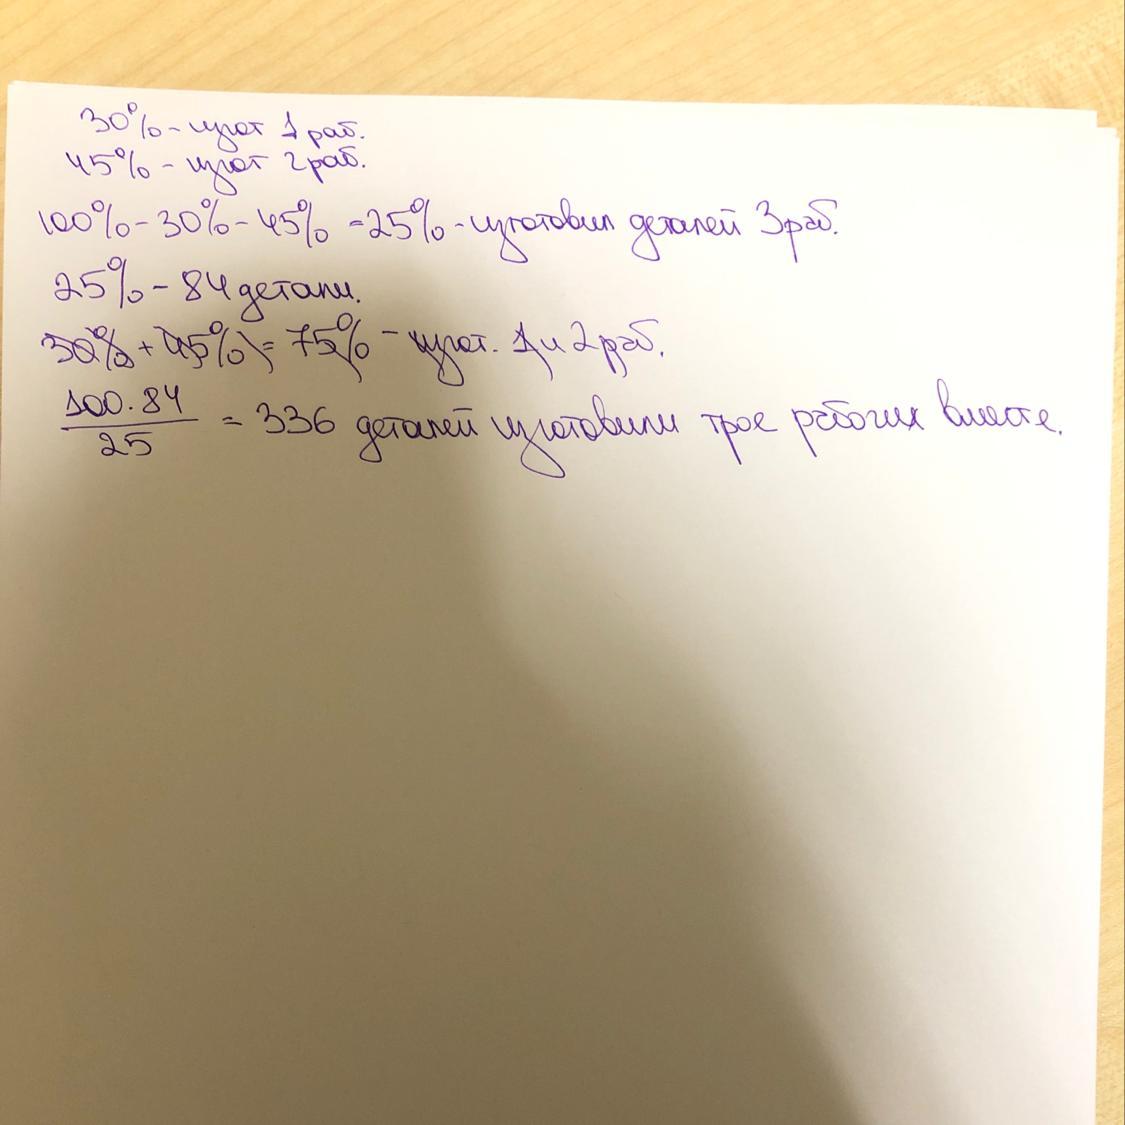 30% - изгот 1 раб.
45% - изгот 2 раб.
100% - 30% - 45% = 25% - изготовил деталей 3 раб.
25% - 84 детали.
30% + 45% = 75% - изгот. 1 и 2 раб.
100 · 84
25
= 336 деталей изготовили трое рабочих вместе.